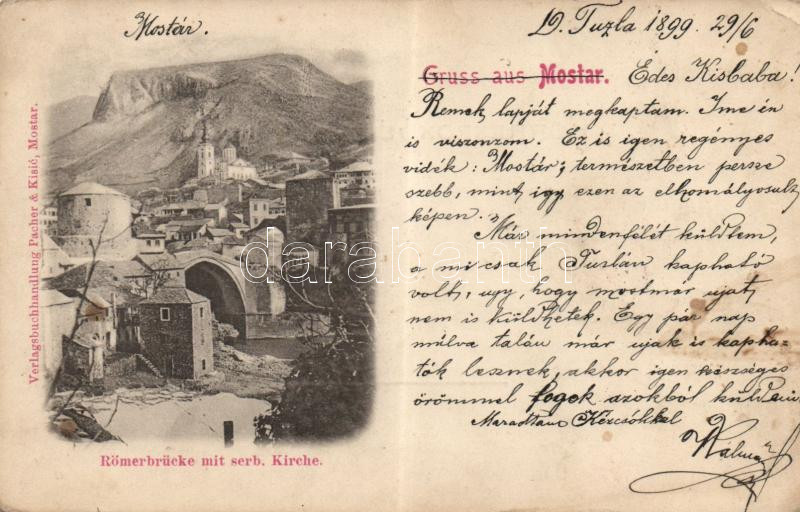 Mostár.
D. Tuzla 1899. 29/6
Gruss aus Mostar.
Édes Kisbaba!
Remek lapját megkaptam. Ime én
is viszonzom. Ez is igen regényes
vidék: Mostár; természetben persze
szebb, mint igy ezen az elhomályosult
képen.
Már mindenfélét küldtem,
a mi csak Tuzlán kapható
volt, ugy, hogy mostmár ujat
nem is küldhetek. Egy pár nap
mulva talán már ujak is kapha-
tók lesznek, akkor igen készséges
örömmel fogok azokból küldeni
Maradtam Kézcsókkal
Kálmán
Verlagsbuchhandlung Pacher & Kisić, Mostar.
Römerbrücke mit serb. Kirche.
darabanth